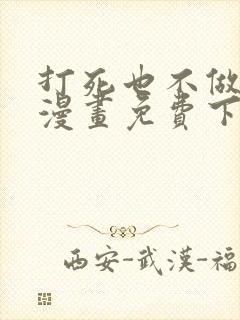 打死也不做
漫畫免費下
西安-武漢-福